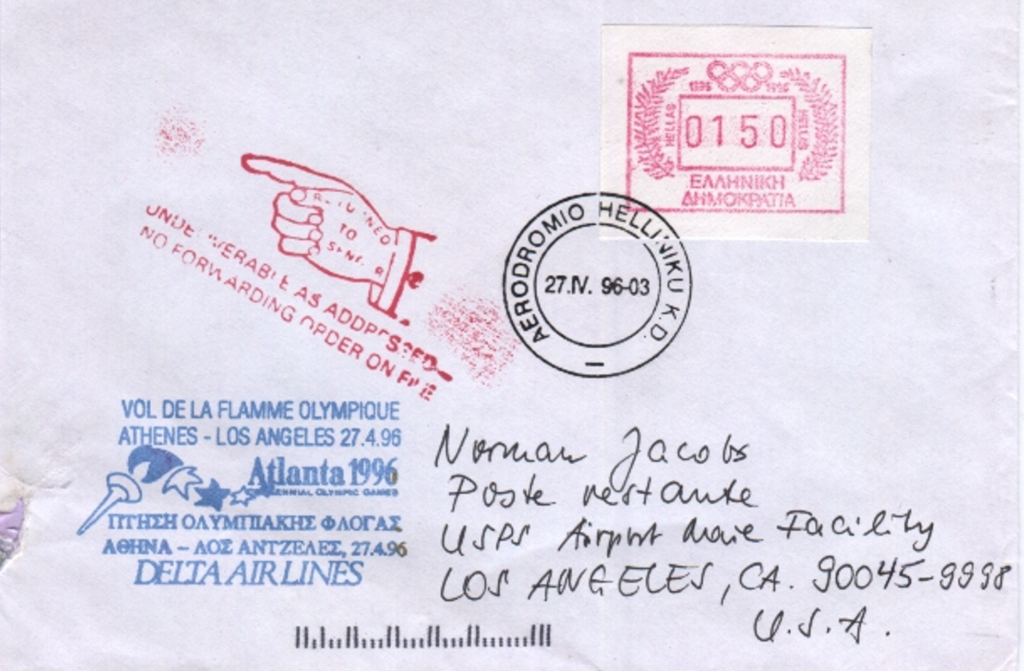 1896 1996
HELLAS 0150 HELLAS
ΕΛΛΗΝΙΚΗ
ΔΗΜΟΚΡΑΤΙΑ
AERODROMIO HELLINIKU K.D.
27.IV. 96-03
RETURNED
TO
SENDER
UNDELIVERABLE AS ADDRESSED
NO FORWARDING ORDER ON FILE
VOL DE LA FLAMME OLYMPIQUE
ATHENES - LOS ANGELES 27.4.96
Atlanta 1996
CENTENNIAL OLYMPIC GAMES
ΠΤΗΣΗ ΟΛΥΜΠΙΑΚΗΣ ΦΛΟΓΑΣ
ΑΘΗΝΑ – ΛΟΣ ΑΝΤΖΕΛΕΣ, 27.4.96
DELTA AIR LINES
Norman Jacobs
Poste restante
USPS Airport Maie Facility
LOS ANGELES, CA. 90045-9998
U.S.A.